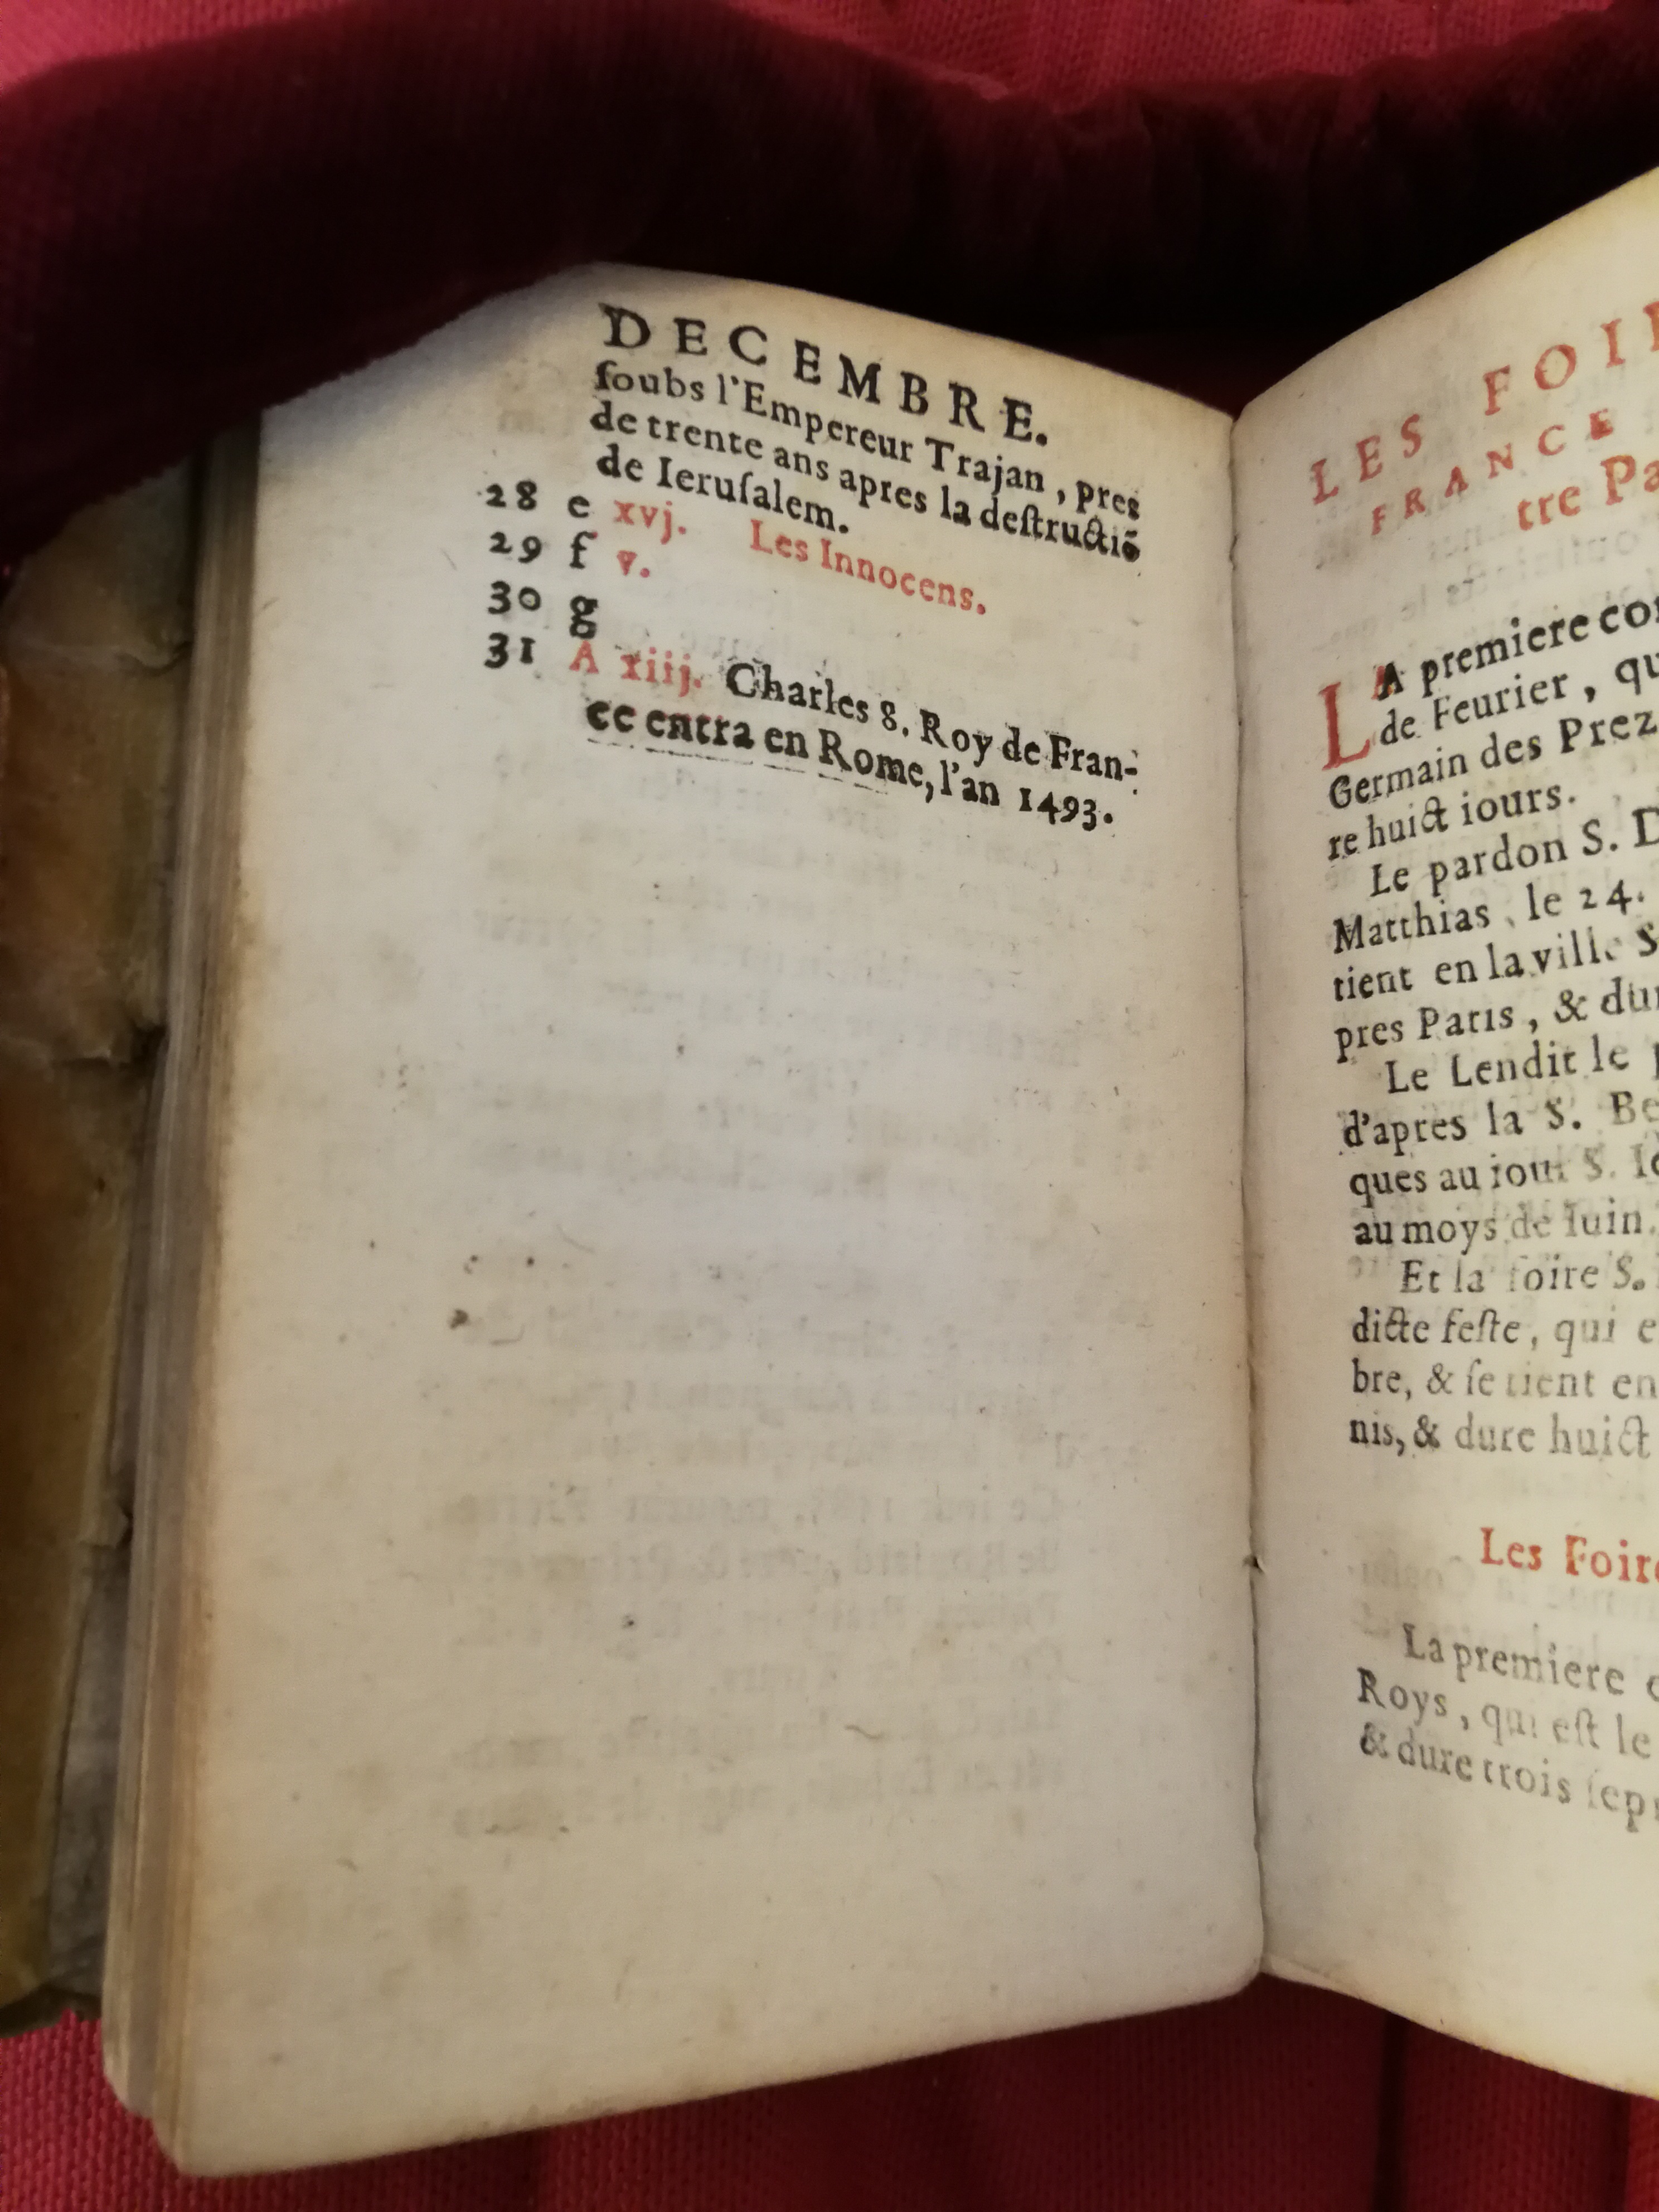 DECEMBRE.
ſoubs l'Empereur Trajan, pres
de trente ans apres la deſtructiõ
de Ieruſalem.
28 e xvj. Les Innocens.
29 f v.
30 g
31 A xiij. Charles 8. Roy de Fran-
ce entra en Rome, l'an 1493.
LES FOI
FRANCE
tre Pa
LA premiere co
de Feurier, qu
Germain des Prez
re huict iours.
Le pardon S. D
Matthias, le 24.
tient en la ville S
pres Paris, & du
Le Lendit le
d'apres la S. Be
ques au iour S. I
au moys de Iuin.
Et la foire S.
dicte feſte, qui e
bre, & ſe tient en
nis, & dure huict
Les Foire
La premiere
Roys, qui eſt le
& dure trois ſep